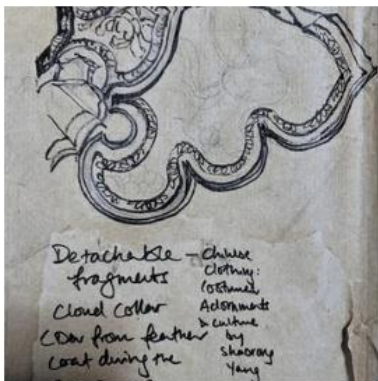 Detachable –
fragments
Cloud Collar
from feather
coat during the
Chinese
Clothing:
Costumes
Adornments
& culture
by
Shaorong
Yang